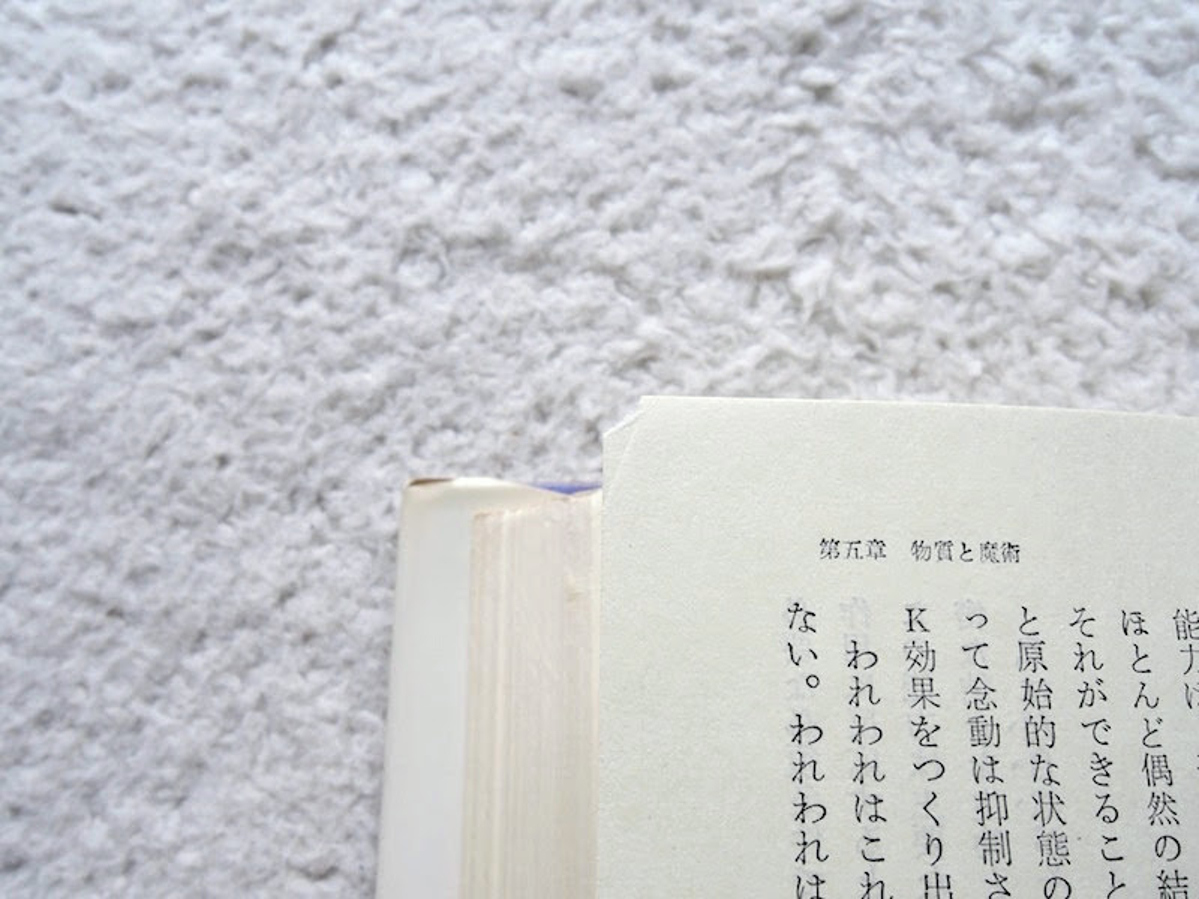 第五章 物質と魔術
能力は
ほとんど偶然の結
それができること
と原始的な状態の
って念動は抑制さ
K効果をつくり出
われわれはこれ
ない。われわれは